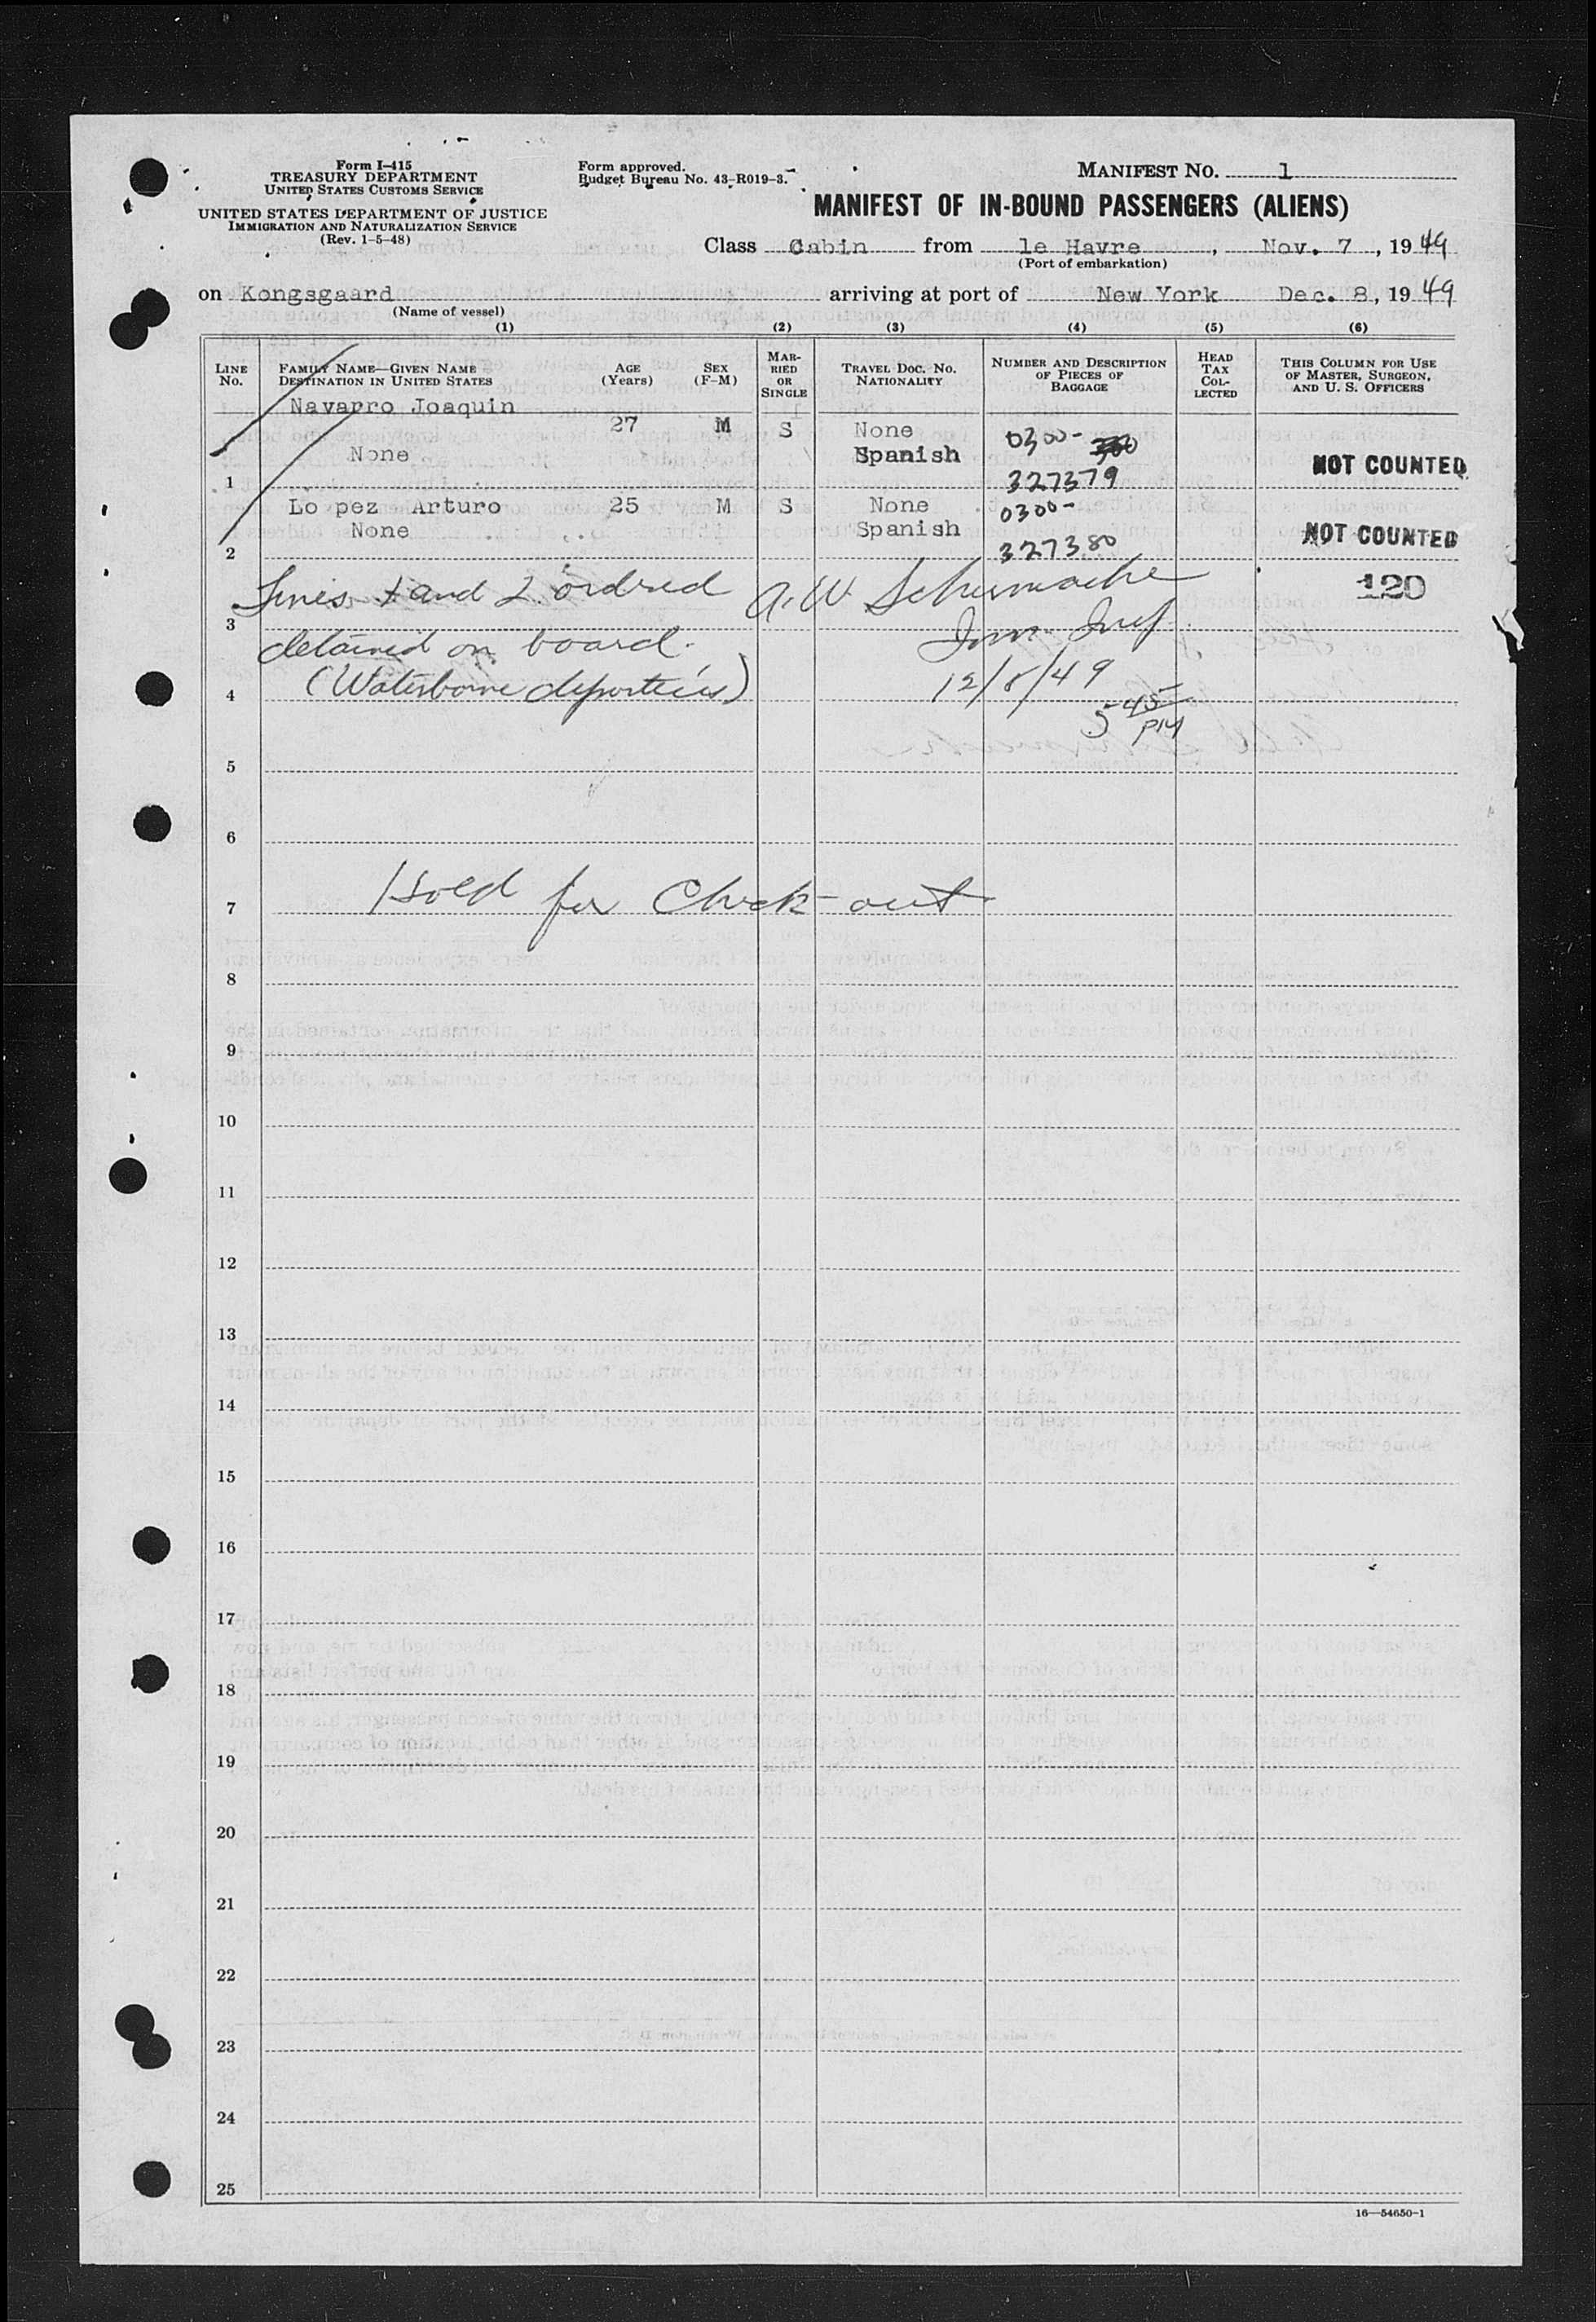 Form I-415
TREASURY DEPARTMENT
UNITED STATES CUSTOMS SERVICE
UNITED STATES DEPARTMENT OF JUSTICE
IMMIGRATION AND NATURALIZATION SERVICE
(Rev. 1-5-48)
Form approved.
Budget Bureau No. 43-R019-3.
MANIFEST NO. 1
MANIFEST OF IN-BOUND PASSENGERS (ALIENS)
Class Cabin from le Havre, Nov. 7, 1949
(Port of embarkation)
on Kongsgaard arriving at port of New York Dec. 8, 1949
(Name of vessel)
(1) (2) (3) (4) (5) (6)
LINE NO.
FAMILY NAME—GIVEN NAME
DESTINATION IN UNITED STATES
AGE (Years)
SEX (F-M)
MARRIED OR SINGLE
TRAVEL DOC. NO.
NATIONALITY
NUMBER AND DESCRIPTION OF PIECES OF BAGGAGE
HEAD TAX COLLECTED
THIS COLUMN FOR USE OF MASTER, SURGEON, AND U. S. OFFICERS
Navarro Joaquin
27 M S None 0300-
None Spanish NOT COUNTED
1 327379
Lo pez Arturo 25 M S None 0300-
None Spanish NOT COUNTED
2 327380
Lines 1 and 2 ordred A. W. Schumache 120
3
detained on board. Imm. Insp.
(Waterborne deportees) 12/8/49
4
5 45 PM
5
6
7 Hold for Check-out
8
9
10
11
12
13
14
15
16
17
18
19
20
21
22
23
24
25
16—54650-1